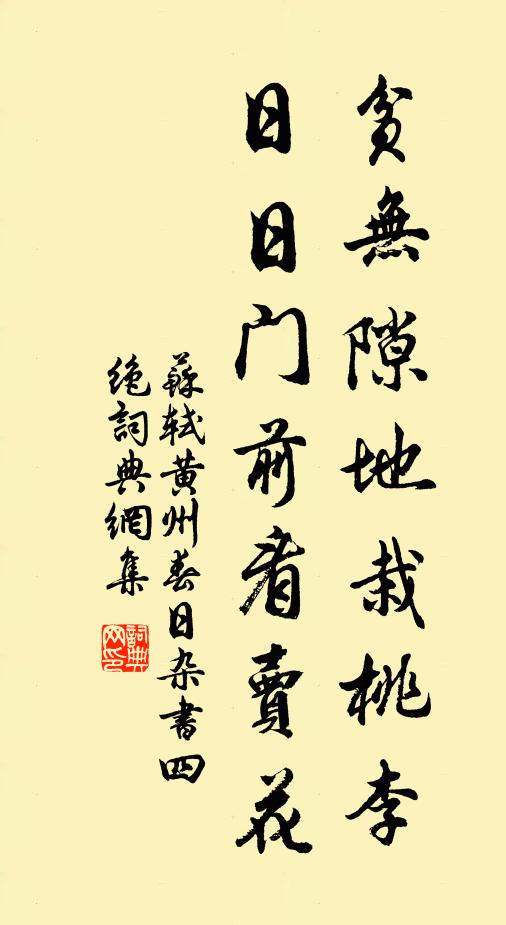 貧無隙地栽桃李
日日門前看賣花
蘇軾黄州春日杂書四
絶詞典網集
詞典
网印